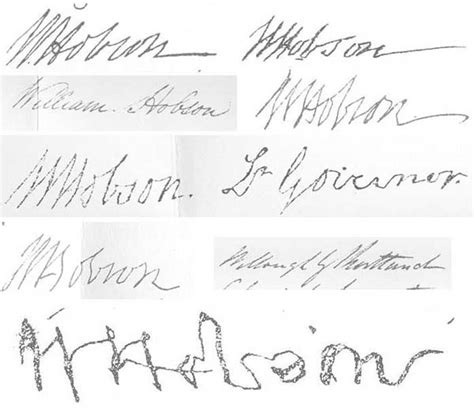 WHobson WHobson
William Hobson WHobson
WHobson. Lt Governor.
WHobson Willoughby Shortland
WHobson